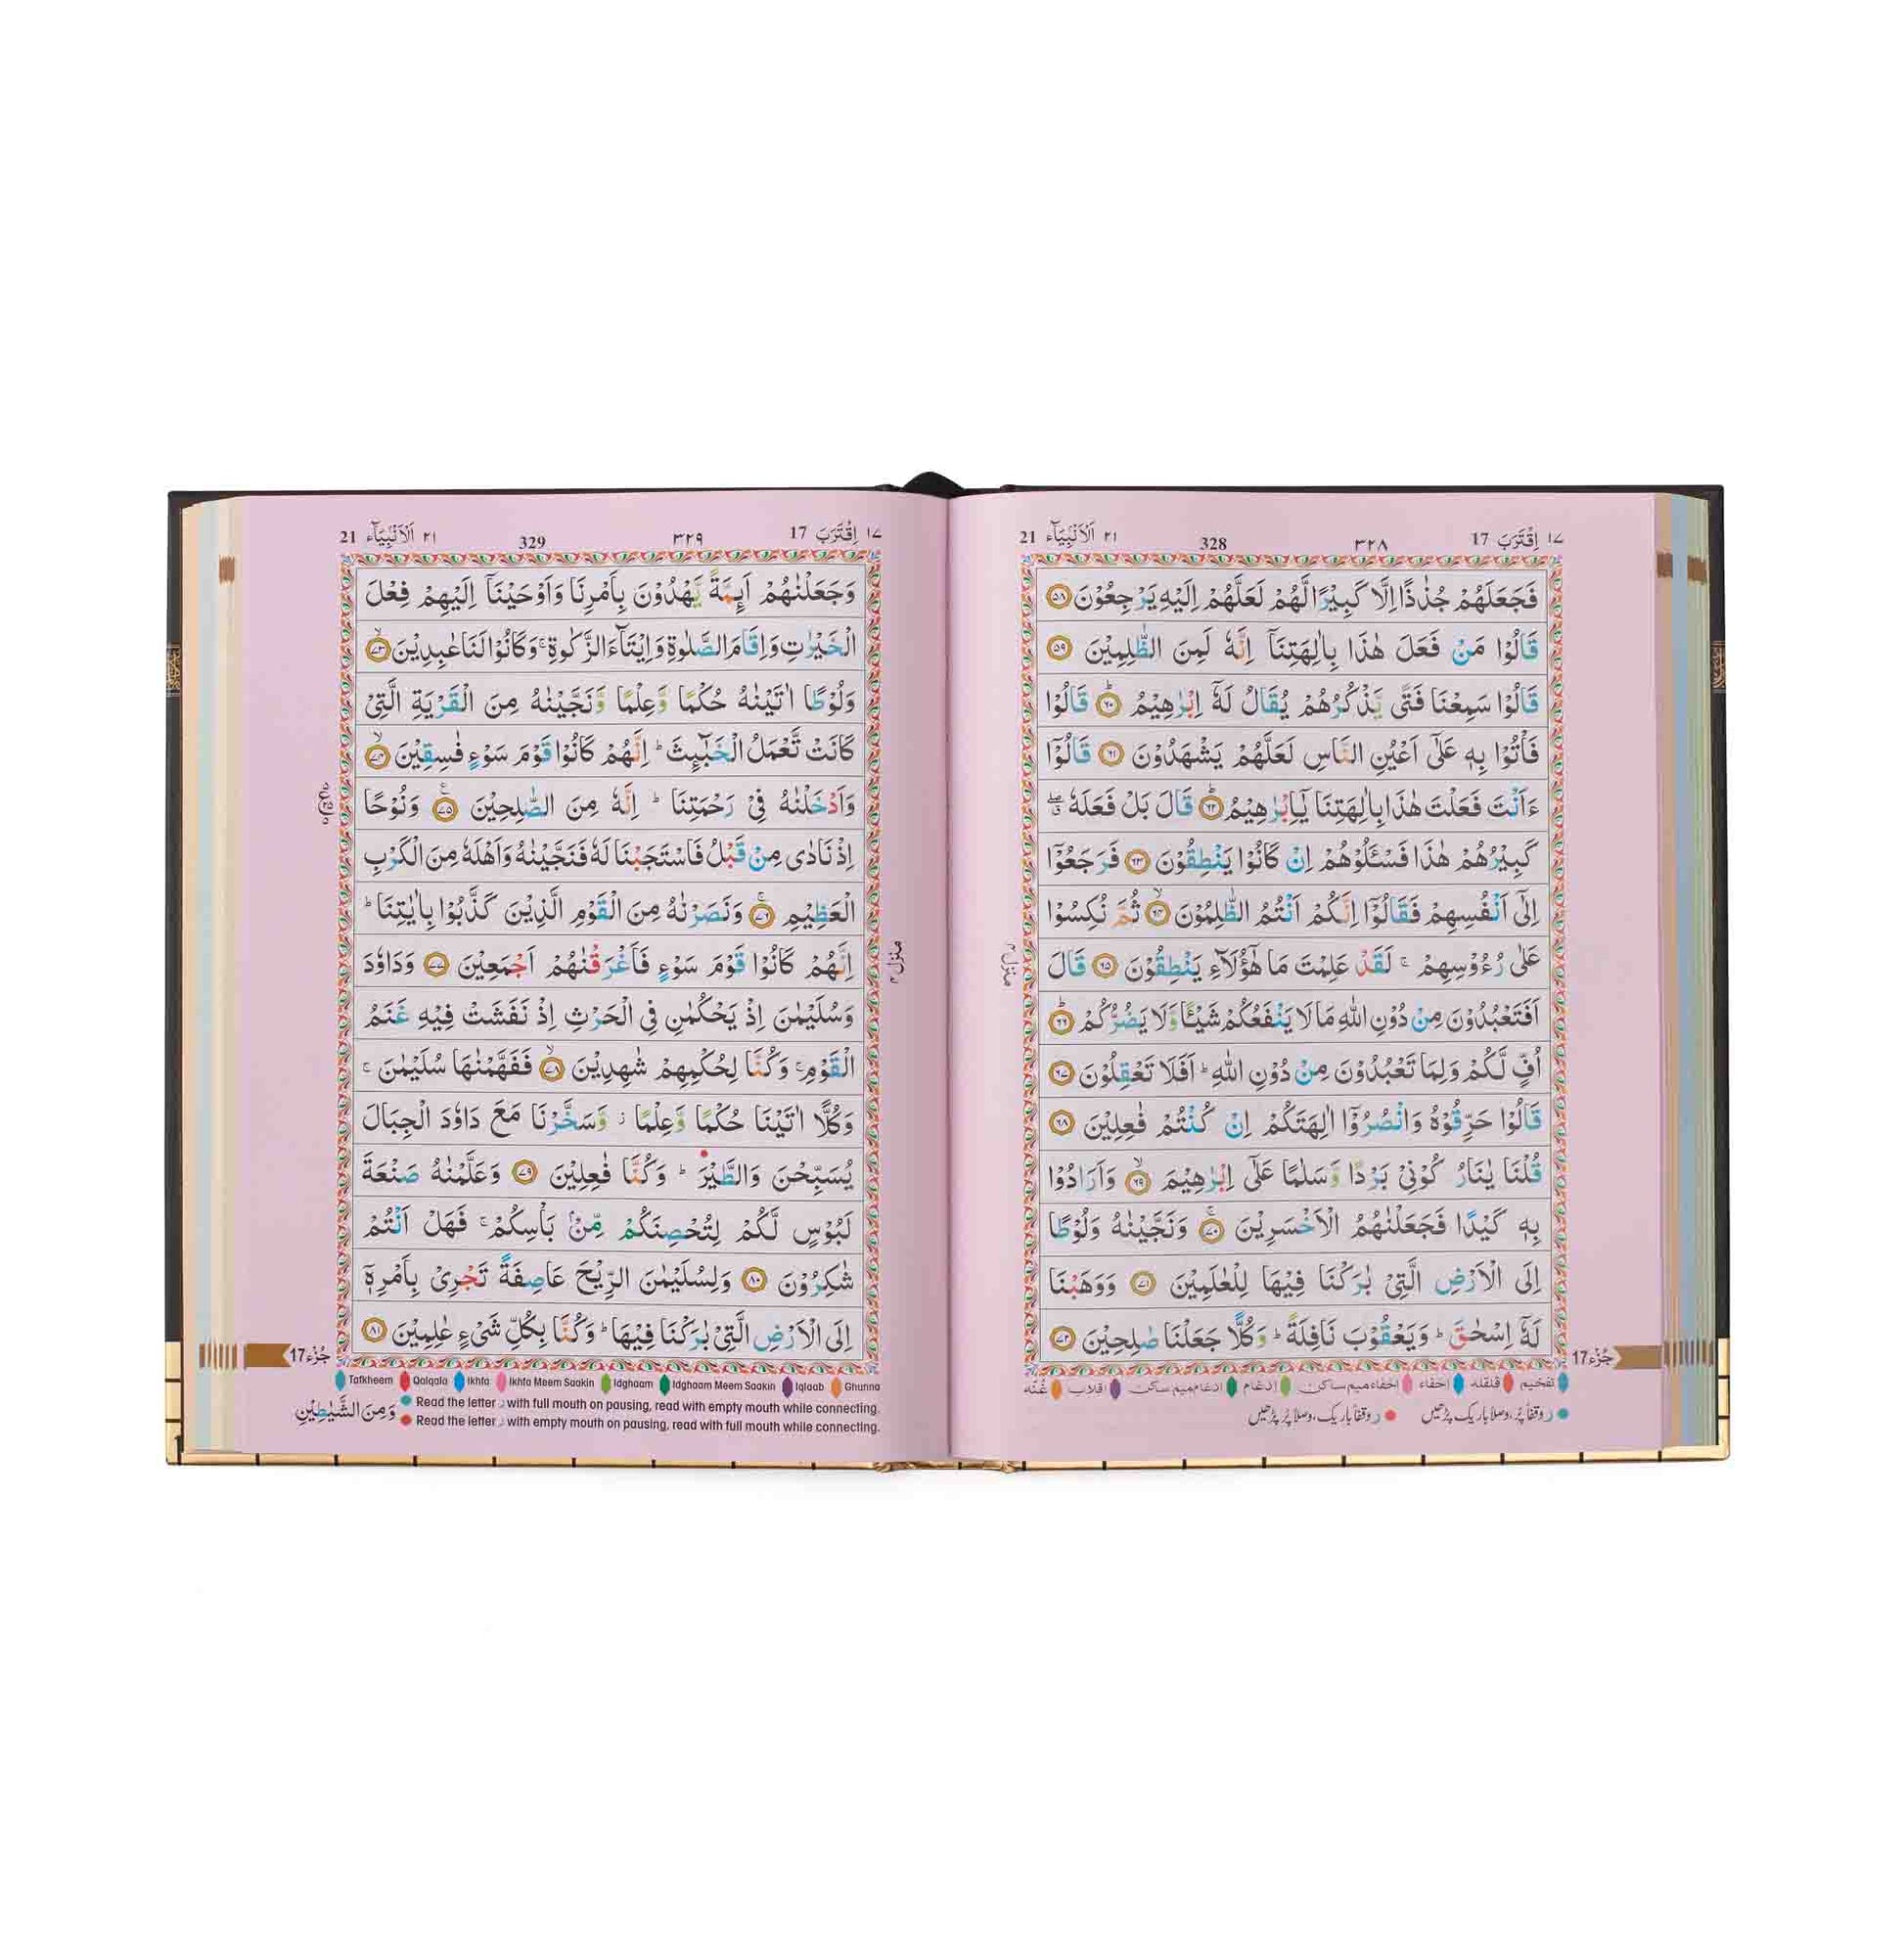 ١٧ اِقْتَرَبَ 17 ٣٢٨ 328 ٢١ اَلْاَنْۢبِيَآء 21
فَجَعَلَهُمْ جُذٰذًا اِلَّا كَبِيْرًا لَّهُمْ لَعَلَّهُمْ اِلَيْهِ يَرْجِعُوْنَ ٥٨
قَالُوْا مَنْ فَعَلَ هٰذَا بِاٰلِهَتِنَاۤ اِنَّهٗ لَمِنَ الظّٰلِمِيْنَ ٥٩
قَالُوْا سَمِعْنَا فَتًى يَّذْكُرُهُمْ يُقَالُ لَهٗۤ اِبْرٰهِيْمُ ؕ ٦٠ قَالُوْا
فَاْتُوْا بِهٖ عَلٰۤى اَعْيُنِ النَّاسِ لَعَلَّهُمْ يَشْهَدُوْنَ ٦١ قَالُوْۤا
ءَاَنْتَ فَعَلْتَ هٰذَا بِاٰلِهَتِنَا يٰۤاِبْرٰهِيْمُ ؕ ٦٢ قَالَ بَلْ فَعَلَهٗ ۖۗ
كَبِيْرُهُمْ هٰذَا فَسْـَٔلُوْهُمْ اِنْ كَانُوْا يَنْطِقُوْنَ ٦٣ فَرَجَعُوْۤا
اِلٰۤى اَنْفُسِهِمْ فَقَالُوْۤا اِنَّكُمْ اَنْتُمُ الظّٰلِمُوْنَ ۙ ٦٤ ثُمَّ نُكِسُوْا
عَلٰى رُءُوْسِهِمْ ۚ لَقَدْ عَلِمْتَ مَا هٰۤؤُلَآءِ يَنْطِقُوْنَ ٦٥ قَالَ
اَفَتَعْبُدُوْنَ مِنْ دُوْنِ اللّٰهِ مَا لَا يَنْفَعُكُمْ شَيْـًٔا وَّلَا يَضُرُّكُمْ ؕ ٦٦
اُفٍّ لَّكُمْ وَلِمَا تَعْبُدُوْنَ مِنْ دُوْنِ اللّٰهِ ؕ اَفَلَا تَعْقِلُوْنَ ٦٧
قَالُوْا حَرِّقُوْهُ وَانْصُرُوْۤا اٰلِهَتَكُمْ اِنْ كُنْتُمْ فٰعِلِيْنَ ٦٨
قُلْنَا يٰنَارُ كُوْنِيْ بَرْدًا وَّسَلٰمًا عَلٰۤى اِبْرٰهِيْمَ ۙ ٦٩ وَاَرَادُوْا
بِهٖ كَيْدًا فَجَعَلْنٰهُمُ الْاَخْسَرِيْنَ ۚ ٧٠ وَنَجَّيْنٰهُ وَلُوْطًا
اِلَى الْاَرْضِ الَّتِيْ بٰرَكْنَا فِيْهَا لِلْعٰلَمِيْنَ ٧١ وَوَهَبْنَا
لَهٗۤ اِسْحٰقَ ؕ وَيَعْقُوْبَ نَافِلَةً ؕ وَكُلًّا جَعَلْنَا صٰلِحِيْنَ ٧٢
جُزْء 17
منزل ٤
تفخیم قلقله اخفاء اخفاء میم ساکن ادغام ادغام میم ساکن اقلاب غُنّه
ر وقفاً پُر، وصلا باریک پڑھیں ر وقفاً باریک، وصلا پُر پڑھیں
١٧ اِقْتَرَبَ 17 ٣٢٩ 329 ٢١ اَلْاَنْۢبِيَآء 21
وَجَعَلْنٰهُمْ اَئِمَّةً يَّهْدُوْنَ بِاَمْرِنَا وَاَوْحَيْنَاۤ اِلَيْهِمْ فِعْلَ
الْخَيْرٰتِ وَاِقَامَ الصَّلٰوةِ وَاِيْتَآءَ الزَّكٰوةِ ۚ وَكَانُوْا لَنَا عٰبِدِيْنَ ۙ ٧٣
وَلُوْطًا اٰتَيْنٰهُ حُكْمًا وَّعِلْمًا وَّنَجَّيْنٰهُ مِنَ الْقَرْيَةِ الَّتِيْ
كَانَتْ تَّعْمَلُ الْخَبٰٓئِثَ ؕ اِنَّهُمْ كَانُوْا قَوْمَ سَوْءٍ فٰسِقِيْنَ ۙ ٧٤
وَاَدْخَلْنٰهُ فِيْ رَحْمَتِنَا ؕ اِنَّهٗ مِنَ الصّٰلِحِيْنَ ٧٥ وَنُوْحًا
اِذْ نَادٰى مِنْ قَبْلُ فَاسْتَجَبْنَا لَهٗ فَنَجَّيْنٰهُ وَاَهْلَهٗ مِنَ الْكَرْبِ
الْعَظِيْمِ ۚ ٧٦ وَنَصَرْنٰهُ مِنَ الْقَوْمِ الَّذِيْنَ كَذَّبُوْا بِاٰيٰتِنَا ؕ
اِنَّهُمْ كَانُوْا قَوْمَ سَوْءٍ فَاَغْرَقْنٰهُمْ اَجْمَعِيْنَ ٧٧ وَدَاوٗدَ
وَسُلَيْمٰنَ اِذْ يَحْكُمٰنِ فِي الْحَرْثِ اِذْ نَفَشَتْ فِيْهِ غَنَمُ
الْقَوْمِ ۚ وَكُنَّا لِحُكْمِهِمْ شٰهِدِيْنَ ۙ ٧٨ فَفَهَّمْنٰهَا سُلَيْمٰنَ ۚ
وَكُلًّا اٰتَيْنَا حُكْمًا وَّعِلْمًا ؗ وَّسَخَّرْنَا مَعَ دَاوٗدَ الْجِبَالَ
يُسَبِّحْنَ وَالطَّيْرَ ؕ وَكُنَّا فٰعِلِيْنَ ٧٩ وَعَلَّمْنٰهُ صَنْعَةَ
لَبُوْسٍ لَّكُمْ لِتُحْصِنَكُمْ مِّنْۢ بَاْسِكُمْ ۚ فَهَلْ اَنْتُمْ
شٰكِرُوْنَ ٨٠ وَلِسُلَيْمٰنَ الرِّيْحَ عَاصِفَةً تَجْرِيْ بِاَمْرِهٖۤ
اِلَى الْاَرْضِ الَّتِيْ بٰرَكْنَا فِيْهَا ؕ وَكُنَّا بِكُلِّ شَيْءٍ عٰلِمِيْنَ ٨١
جُزْء 17
منزل ٤
Tafkheem Qalqala Ikhfa Ikhfa Meem Saakin Idghaam Idghaam Meem Saakin Iqlaab Ghunna
Read the letter ر with full mouth on pausing, read with empty mouth while connecting.
Read the letter ر with empty mouth on pausing, read with full mouth while connecting.
وَمِنَ الشَّيٰطِيْنِ